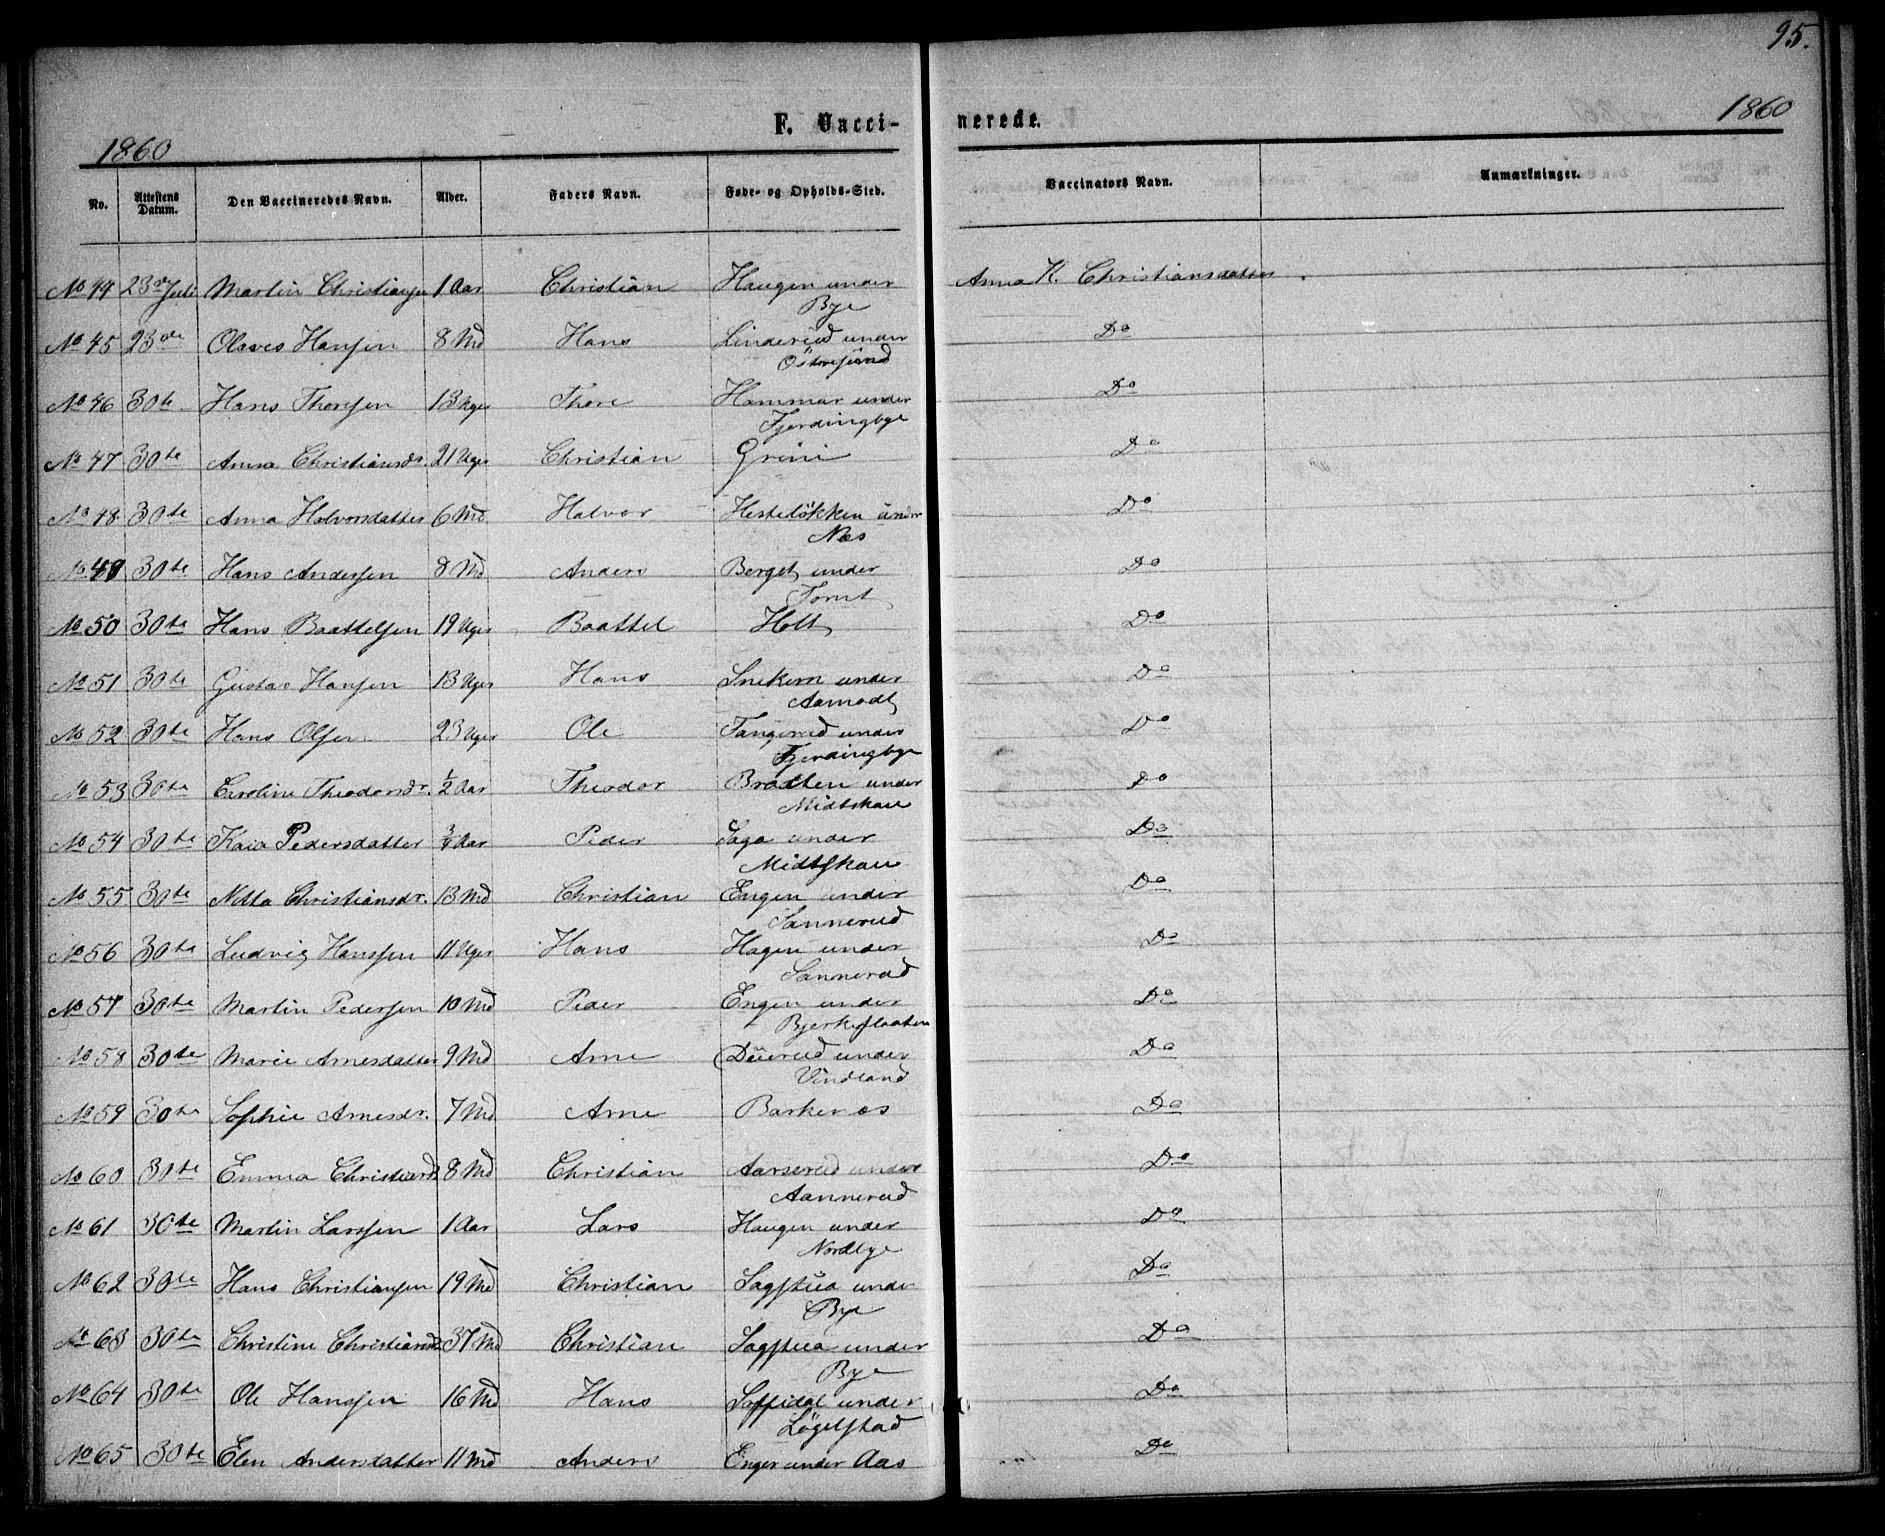 95.
1860 F. Vacci- nerede. 1860
No. Attestens Datum. Den Vaccineredes Navn. Alder. Faders Navn. Føde- og Opholds-Sted. Vaccinators Navn. Anmærkninger.
No 44 23de Juli Martin Christiansen 1 Aar Christian Haugen under Bye Anna K. Christiansdatter
No 45 23de Olaves Hansen 8 Md Hans Linderud under Do
No 46 30te Hans Thoresen 13 Uger Thore Hammar under Fjerdingbye Do
No 47 30te Anna Christiansdr. 21 Uger Christian Grini Do
No 48 30te Anna Halvorsdatter 6 Md Halvor Hesteløkken under Næs Do
No 49 30te Hans Andersen 8 Md Anders Berget under Tomt Do
No 50 30te Hans Baattelsen 19 Uger Baattel Holt Do
No 51 30te Gustav Hansen 13 Uger Hans Snekern under Aamodt Do
No 52 30te Hans Olsen 23 Uger Ole Tangerud under Fjerdingbye Do
No 53 30te Caroline Theodorsdr. 1/2 Aar Theodor Braaten under Midtskau Do
No 54 30te Kaia Pedersdatter 3/4 Aar Peder Saga under Midtskau Do
No 55 30te Netta Christiansdr. 13 Md Christian Engen under Sannerud Do
No 56 30te Ludvig Hanssen 11 Uger Hans Hagen under Sannerud Do
No 57 30te Martin Pedersen 10 Md Peder Engen under Bjerkeflaaten Do
No 58 30te Marie Arnesdatter 9 Md Arne Duerud under Vindland Do
No 59 30te Sophie Arnesdr. 7 Md Arne Barkenæs Do
No 60 30te Emma Christiansd 8 Md Christian Aarserud under Aannerud Do
No 61 30te Martin Larssen 1 Aar Lars Haugen under Nordbye Do
No 62 30te Hans Christiansen 19 Md Christian Sagstua under Bye Do
No 63 30te Christine Christiansd 37 Md Christian Sagstua under Bye Do
No 64 30te Ole Hanssen 16 Md Hans Soffidal under Løgelstad Do
No 65 30te Elen Andersdatter 11 Md Anders Enger under Aas Do